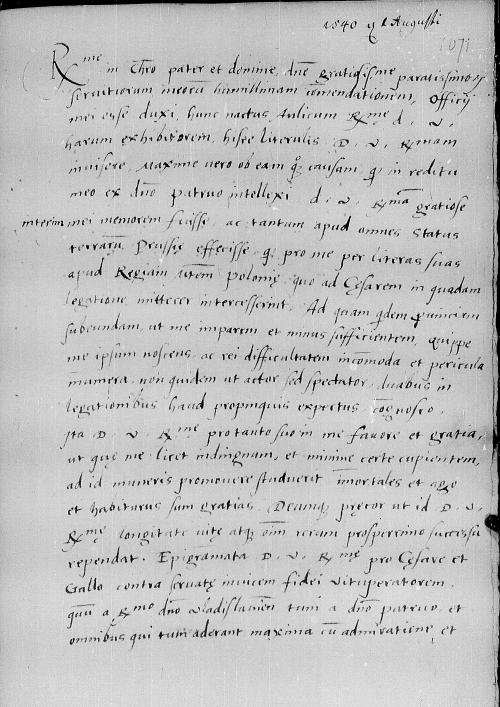 1540 q 1 Augusti
1071
R<sup>me</sup> in Chro pater et domine, dne gratiosisime paratissimorum
servitiorum meorum humillimam comendationem, Officij
mei esse duxi, hunc nactus Aulicum R<sup>me</sup> d. v.
harum exhibitorem, hisce literulis D. V. R<sup>mam</sup>
invisere, Maxime vero ob eam quoque causam, quod in reditu
meo ex dno patruo intellexi d. v. R<sup>mam</sup> gratiose
interim mei memorem fuisse, ac tantum apud omnes status
terrarum Prussię effecisse, quod pro me per literas suas
apud Regiam M<sup>tem</sup> Polonię, quo ad Cęsarem in quadam
legatione mitterer intercesserint, Ad quam quidem provinciam
subeundam, ut me imparem et minus sufficientem, quippe
me ipsum noscens, ac rei difficultatem incomoda et pericula
munera, non quidem ut actor sed spectator, duabus in
legationibus haud propinquis expertus cognosco,
Ita D. V. R<sup>mę</sup> pro tanto suo in me favore et gratia,
ut quę me licet indignum, et minime certe cupientem,
ad id muneris promovere studuerit, immortales et ago
et habiturus sum gratias. Deumque pręcor ut id D. V.
R<sup>mę</sup> longitate vitę atque omnium rerum prosperrimo successu
rependat. Epigramata D. V. R<sup>mę</sup> pro Cęsare et
Gallo contra servatę invicem fidei vituperatorem,
quum a R<sup>mo</sup> dno Vladislavien tum a dno patruo, et
omnibus qui tum aderant maxima cum admiratione, et